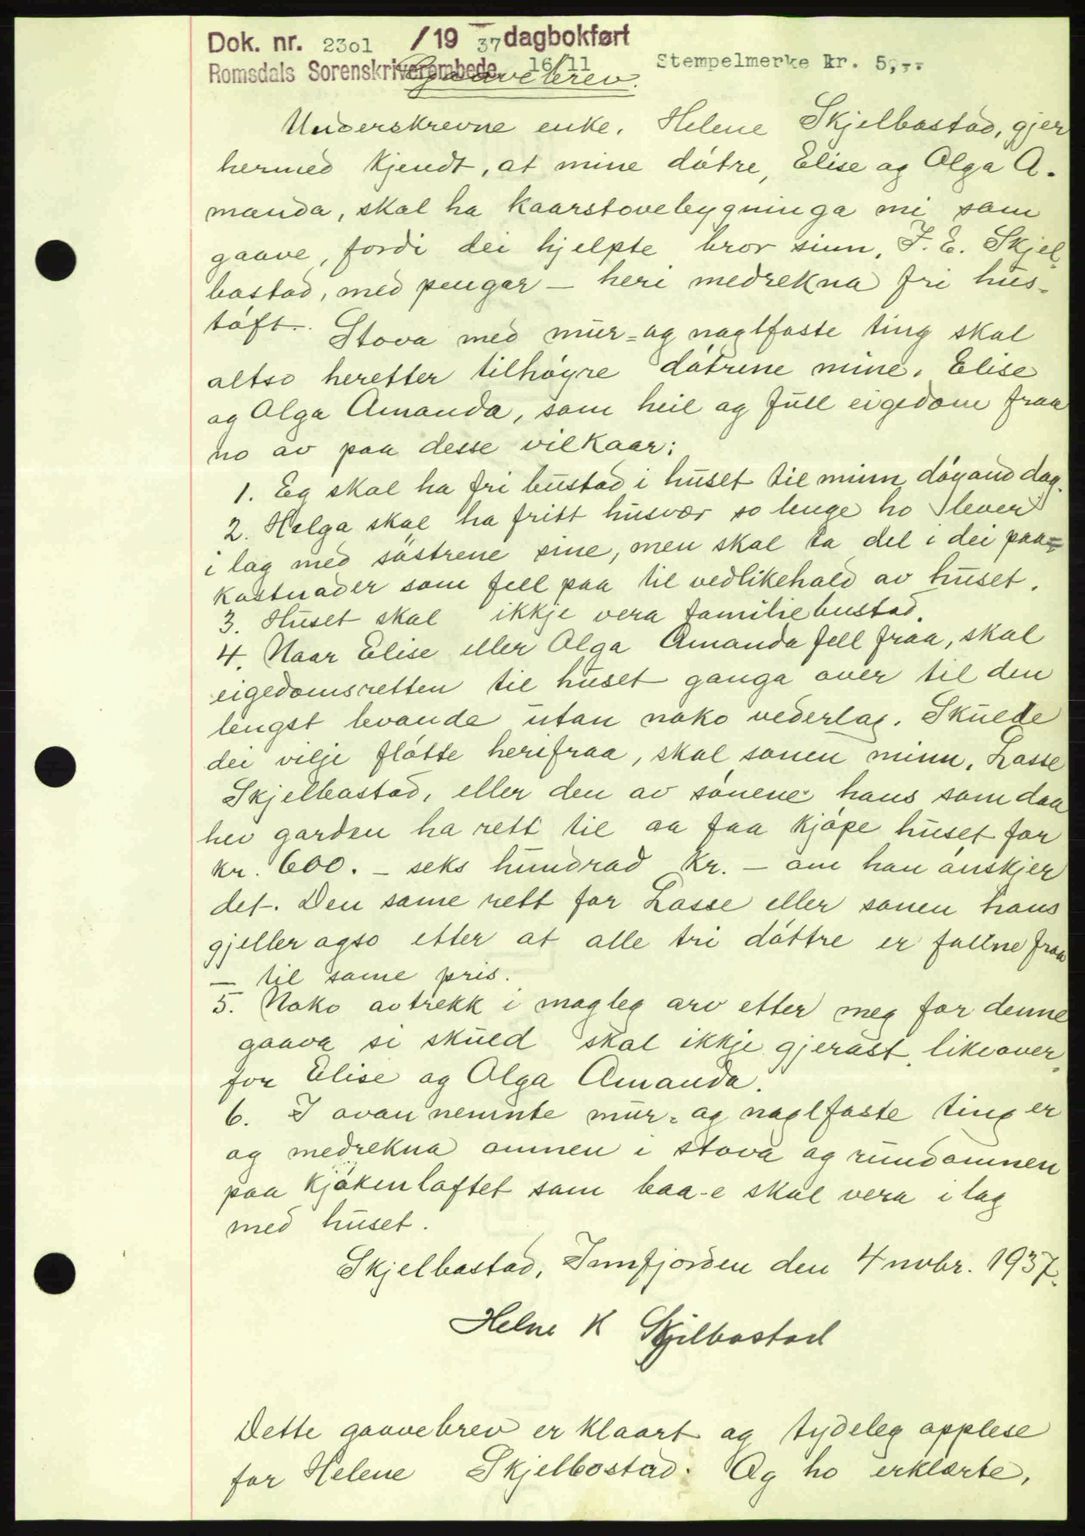 Dok. nr. 2301 /19 37 dagbokført
Romsdals Sorenskriverembede 16/11 Stempelmerke kr. 5,--.
Gaavebrev.
Underskrevne enke, Helene Skjelbostad, gjer
hermed kjendt, at mine døtre, Elise og Olga A-
manda, skal ha kaarstovebygninga mi som
gaave, fordi dei hjelpte bror sinn, J. E. Skjel-
bostad, med pengar – heri medrekna fri hus-
tøft. Stova med mur- og naglfaste ting skal
altso heretter tilhøyre døtrene mine, Elise
og Olga Amanda, som heil og full eigedom fraa
no av paa desse vilkaar:
1. Eg skal ha fri bustad i huset til minn døyand dag.
2. Helga skal ha fritt husvær so lenge ho lever
i lag med søstrene sine, men skal ta del i dei paa-
kostnader som fell paa til vedlikehald av huset.
3. Huset skal ikkje vera familiebustad.
4. Naar Elise eller Olga Amanda fell fraa, skal
eigedomsretten til huset ganga over til den
lengst levande utan noko vederlag. Skulde
dei vilje fløtte herifraa, skal sonen minn, Lasse
Skjelbostad, eller den av sønene hans som daa
hev garden ha rett til aa faa kjøpe huset for
kr. 600. – seks hundrad kr. – om han ønskjer
det. Den same rett for Lasse eller sonen hans
gjeller ogso etter at alle tri døttre er fallne fraa
– til same pris.
5. Noko avtrekk i mogleg arv etter meg for denne
gaava si skuld skal ikkje gjerast likeover-
for Elise og Olga Amanda.
6. I ovannemnte mur- og naglfaste ting er
og medrekna omnen i stova og rundomnen
paa kjøkenloftet som baa-e skal vera i lag
med huset.
Skjelbostad, Innfjorden den 4 novbr. 1937.
Helne K Skjilbostad
Dette gaavebrev er klaart og tydeleg opplese
for Helene Skjelbostad. Og ho erklærte,